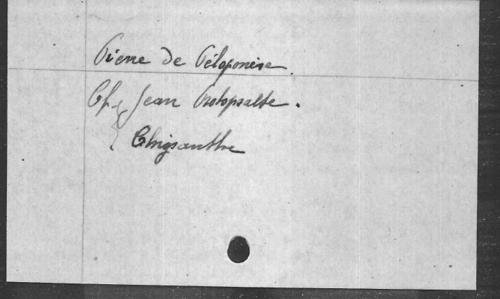 Pierre de Péloponèse.
Cf. { Jean Protopsalte.
Chrysanthe